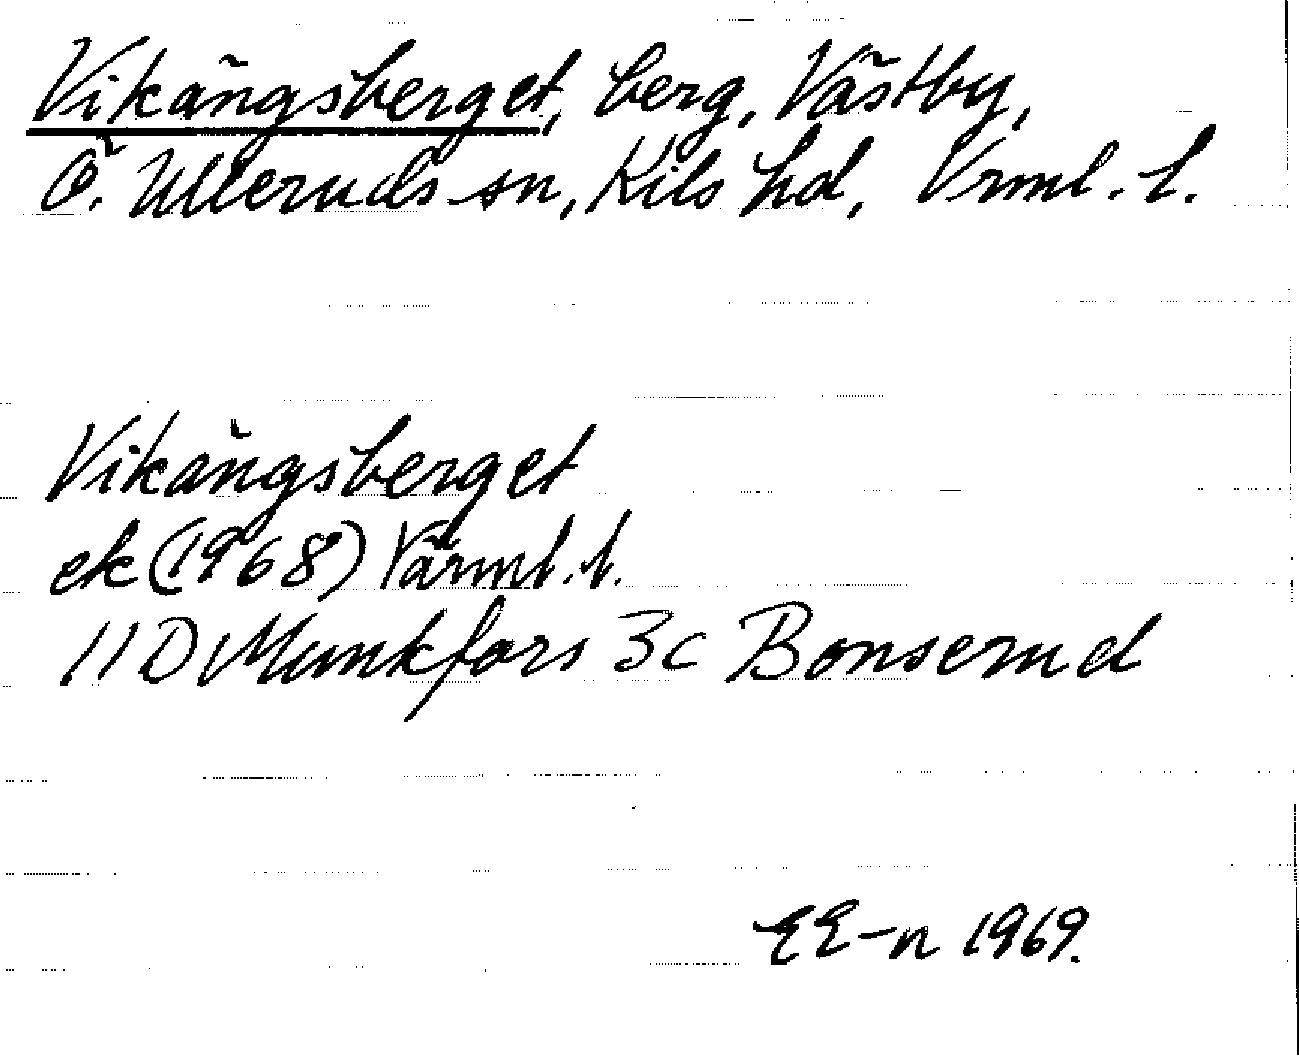 Vikängsberget, berg, Västby,
Ö. Ulleruds sn, Kils hd, Vrml. l.
Vikängsberget
ek (1968) Värml. l.
11D Munkfors 3c Bonserud
EE-n 1969.